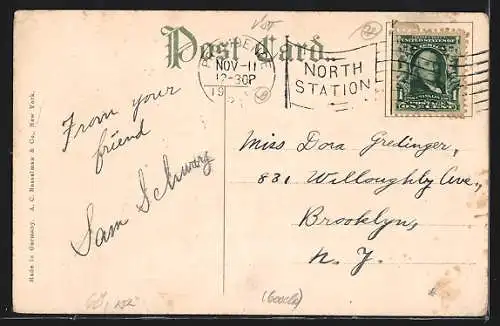 Post Card.
PROVIDENCE
NOV-11
12-30P
19
NORTH
STATION
UNITED STATES OF AMERICA
From your
friend
Sam Schwarz
Miss Dora Gredinger,
831 Willoughby Ave.,
Brooklyn,
N.Y.
Made in Germany. A. C. Bosselman & Co., New York.